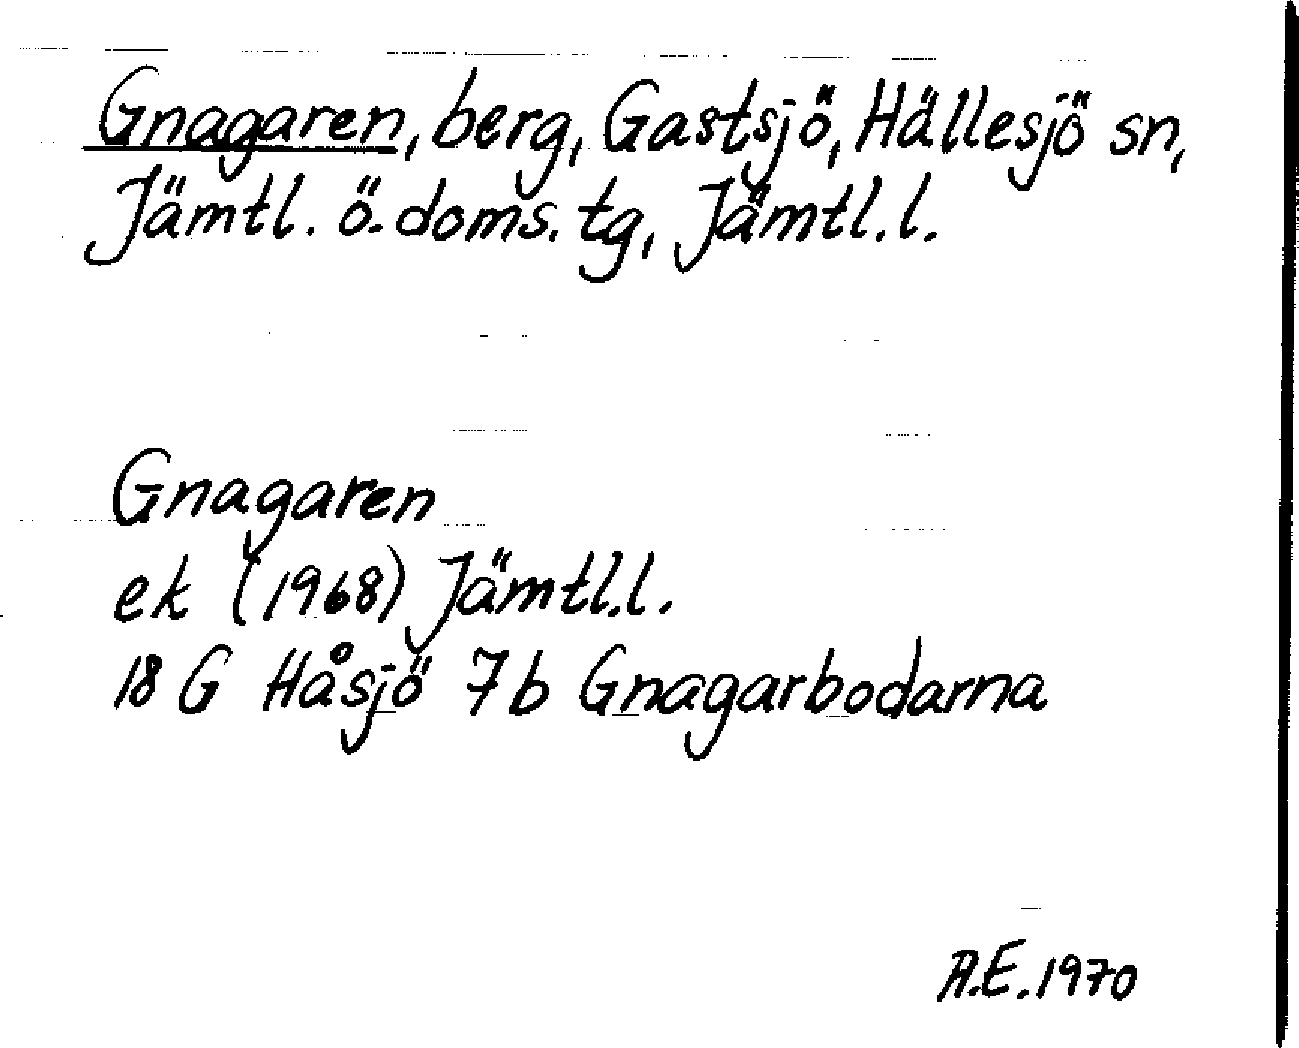 Gnagaren, berg, Gastsjö, Hällesjö sn,
Jämtl. ö. doms. tg, Jämtl. l.
Gnagaren
ek (1968) Jämtl.l.
18 G Håsjö 7b Gnagarbodarna
A.E. 1970